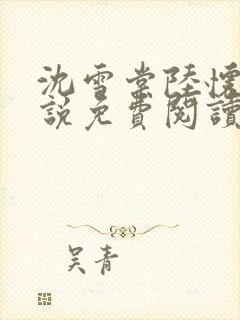 沈雪棠陸懷
說免費閱讀
吴青